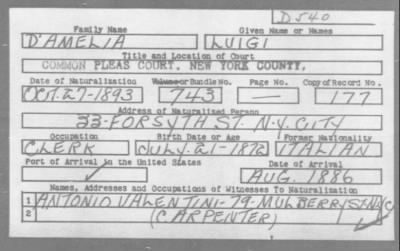 D540
Family Name Given Name or Names
D'AMELIA LUIGI
Title and Location of Court
COMMON PLEAS COURT, NEW YORK COUNTY.
Date of Naturalization Volume or Bundle No. Page No. Copy of Record No.
OCT. 27-1893 743 — 177
Address of Naturalized Person
33-FORSYTH ST. N.Y. CITY
Occupation Birth Date or Age Former Nationality
CLERK JULY-21-1872 ITALIAN
Port of Arrival in the United States Date of Arrival
AUG. 1886
Names, Addresses and Occupations of Witnesses To Naturalization
1 ANTONIO VALENTINI-79-MULBERRY ST. N.Y.C
2 (CARPENTER)